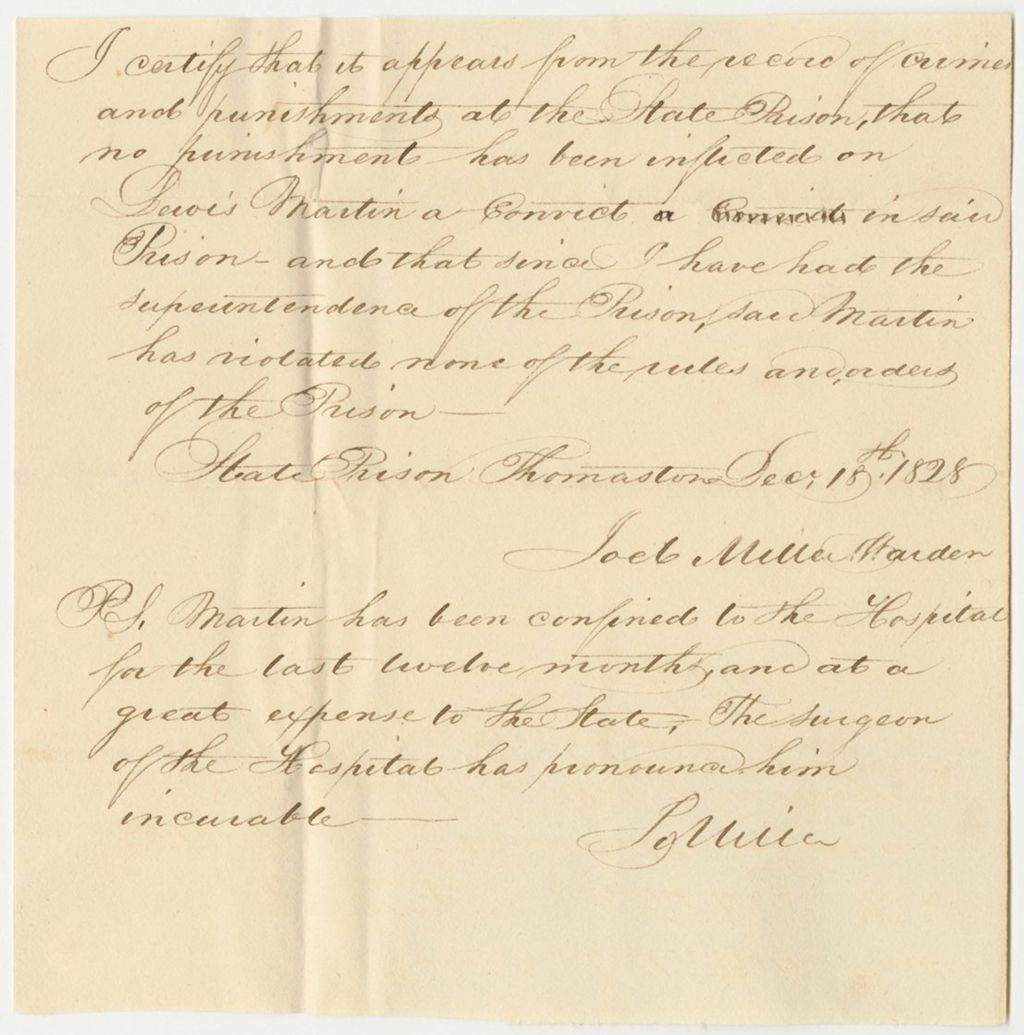 I certify that it appears from the record of crimes
and punishments at the State Prison, that
no punishment has been inflicted on
Lewis Martin a Convict a Convict in said
Prison - and that since I have had the
superintendence of the Prison, said Martin
has violated none of the rules and orders
of the Prison —
State Prison Thomaston Decr 18th. 1828
Joel Miller Warden
P.S. Martin has been confined to the Hospital
for the last twelve months, and at a
great expense to the State, - The surgeon
of the Hospital has pronounce him
incurable —
J Miller